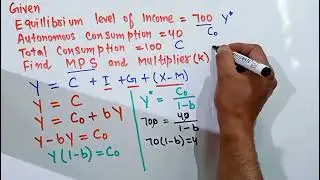 Given
Equilibrium level of Income = 700 Y*
Autonomous consumption = 40 C₀
Total Consumption = 100 C
Find MPS and Multiplier (K)
Y = C + I + G + (X-M)
Y = C
Y = C₀ + bY
Y - bY = C₀
Y(1-b) = C₀
Y* = C₀/1-b
700 = 40/1-b
70(1-b)=4